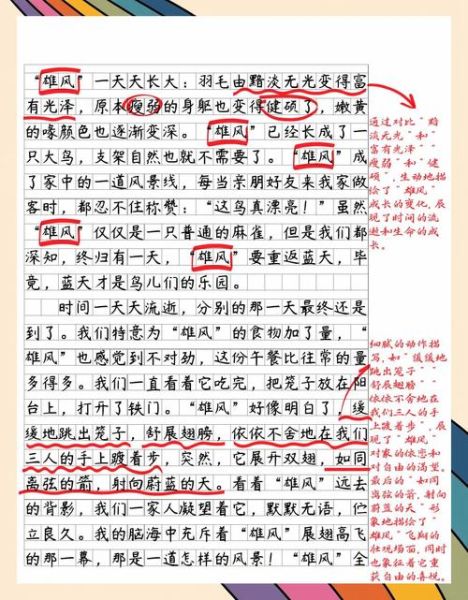 “雄风”一天天长大：羽毛由黯淡无光变得富
有光泽，原本瘦弱的身躯也变得健硕了，嫩黄
的喙颜色也逐渐变深。“雄风”已经长成了一
只大鸟，支架自然也就不需要了。“雄风”成
了家中的一道风景线，每当亲朋好友来我家做
客时，都忍不住称赞：“这鸟真漂亮！”虽然
“雄风”仅仅是一只普通的麻雀，但是我们都
深知，终归有一天，“雄风”要重返蓝天，毕
竟，蓝天才是鸟儿们的乐园。
时间一天天流逝，分别的那一天最终还是
到了。我们特意为“雄风”的食物加了量，“
雄风”也感觉到不对劲，这份午餐比往常的量
多得多。我们一直看着它吃完，把笼子放在阳
台上，打开了铁门。“雄风”好像明白了，缓
缓地跳出笼子，舒展翅膀，依依不舍地在我们
三人的手上踱着步，突然，它展开双翅，如同
离弦的箭，射向蔚蓝的天。看着“雄风”远去
的背影，我们一家人凝望着它，默默无语，伫
立良久。我的脑海中充斥着“雄风”展翅高飞
的那一幕，那是一道怎样的风景！“雄风”全
通过对比“黯
淡无光”和“
富有光泽”“
瘦弱”和“健
硕”，生动地描
绘了“雄风”
成长的变化，展
现了时间的流
逝和生命的成
长。
细腻的动作描
写，如“缓缓地
跳出笼子”“
舒展翅膀”“
依依不舍地在
我们三人的手
上踱着步”，展
现了“雄风”
对家的依恋和
对自由的渴望。
最后的“如同
离弦的箭，射向
蔚蓝的天”形
象地描绘了“
雄风”飞翔的
壮观场面，同时
也象征着它重
获自由的喜悦。